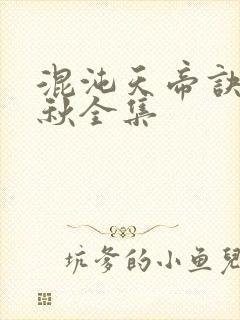 混沌天帝訣
秋全集
坑爹的小鱼兒